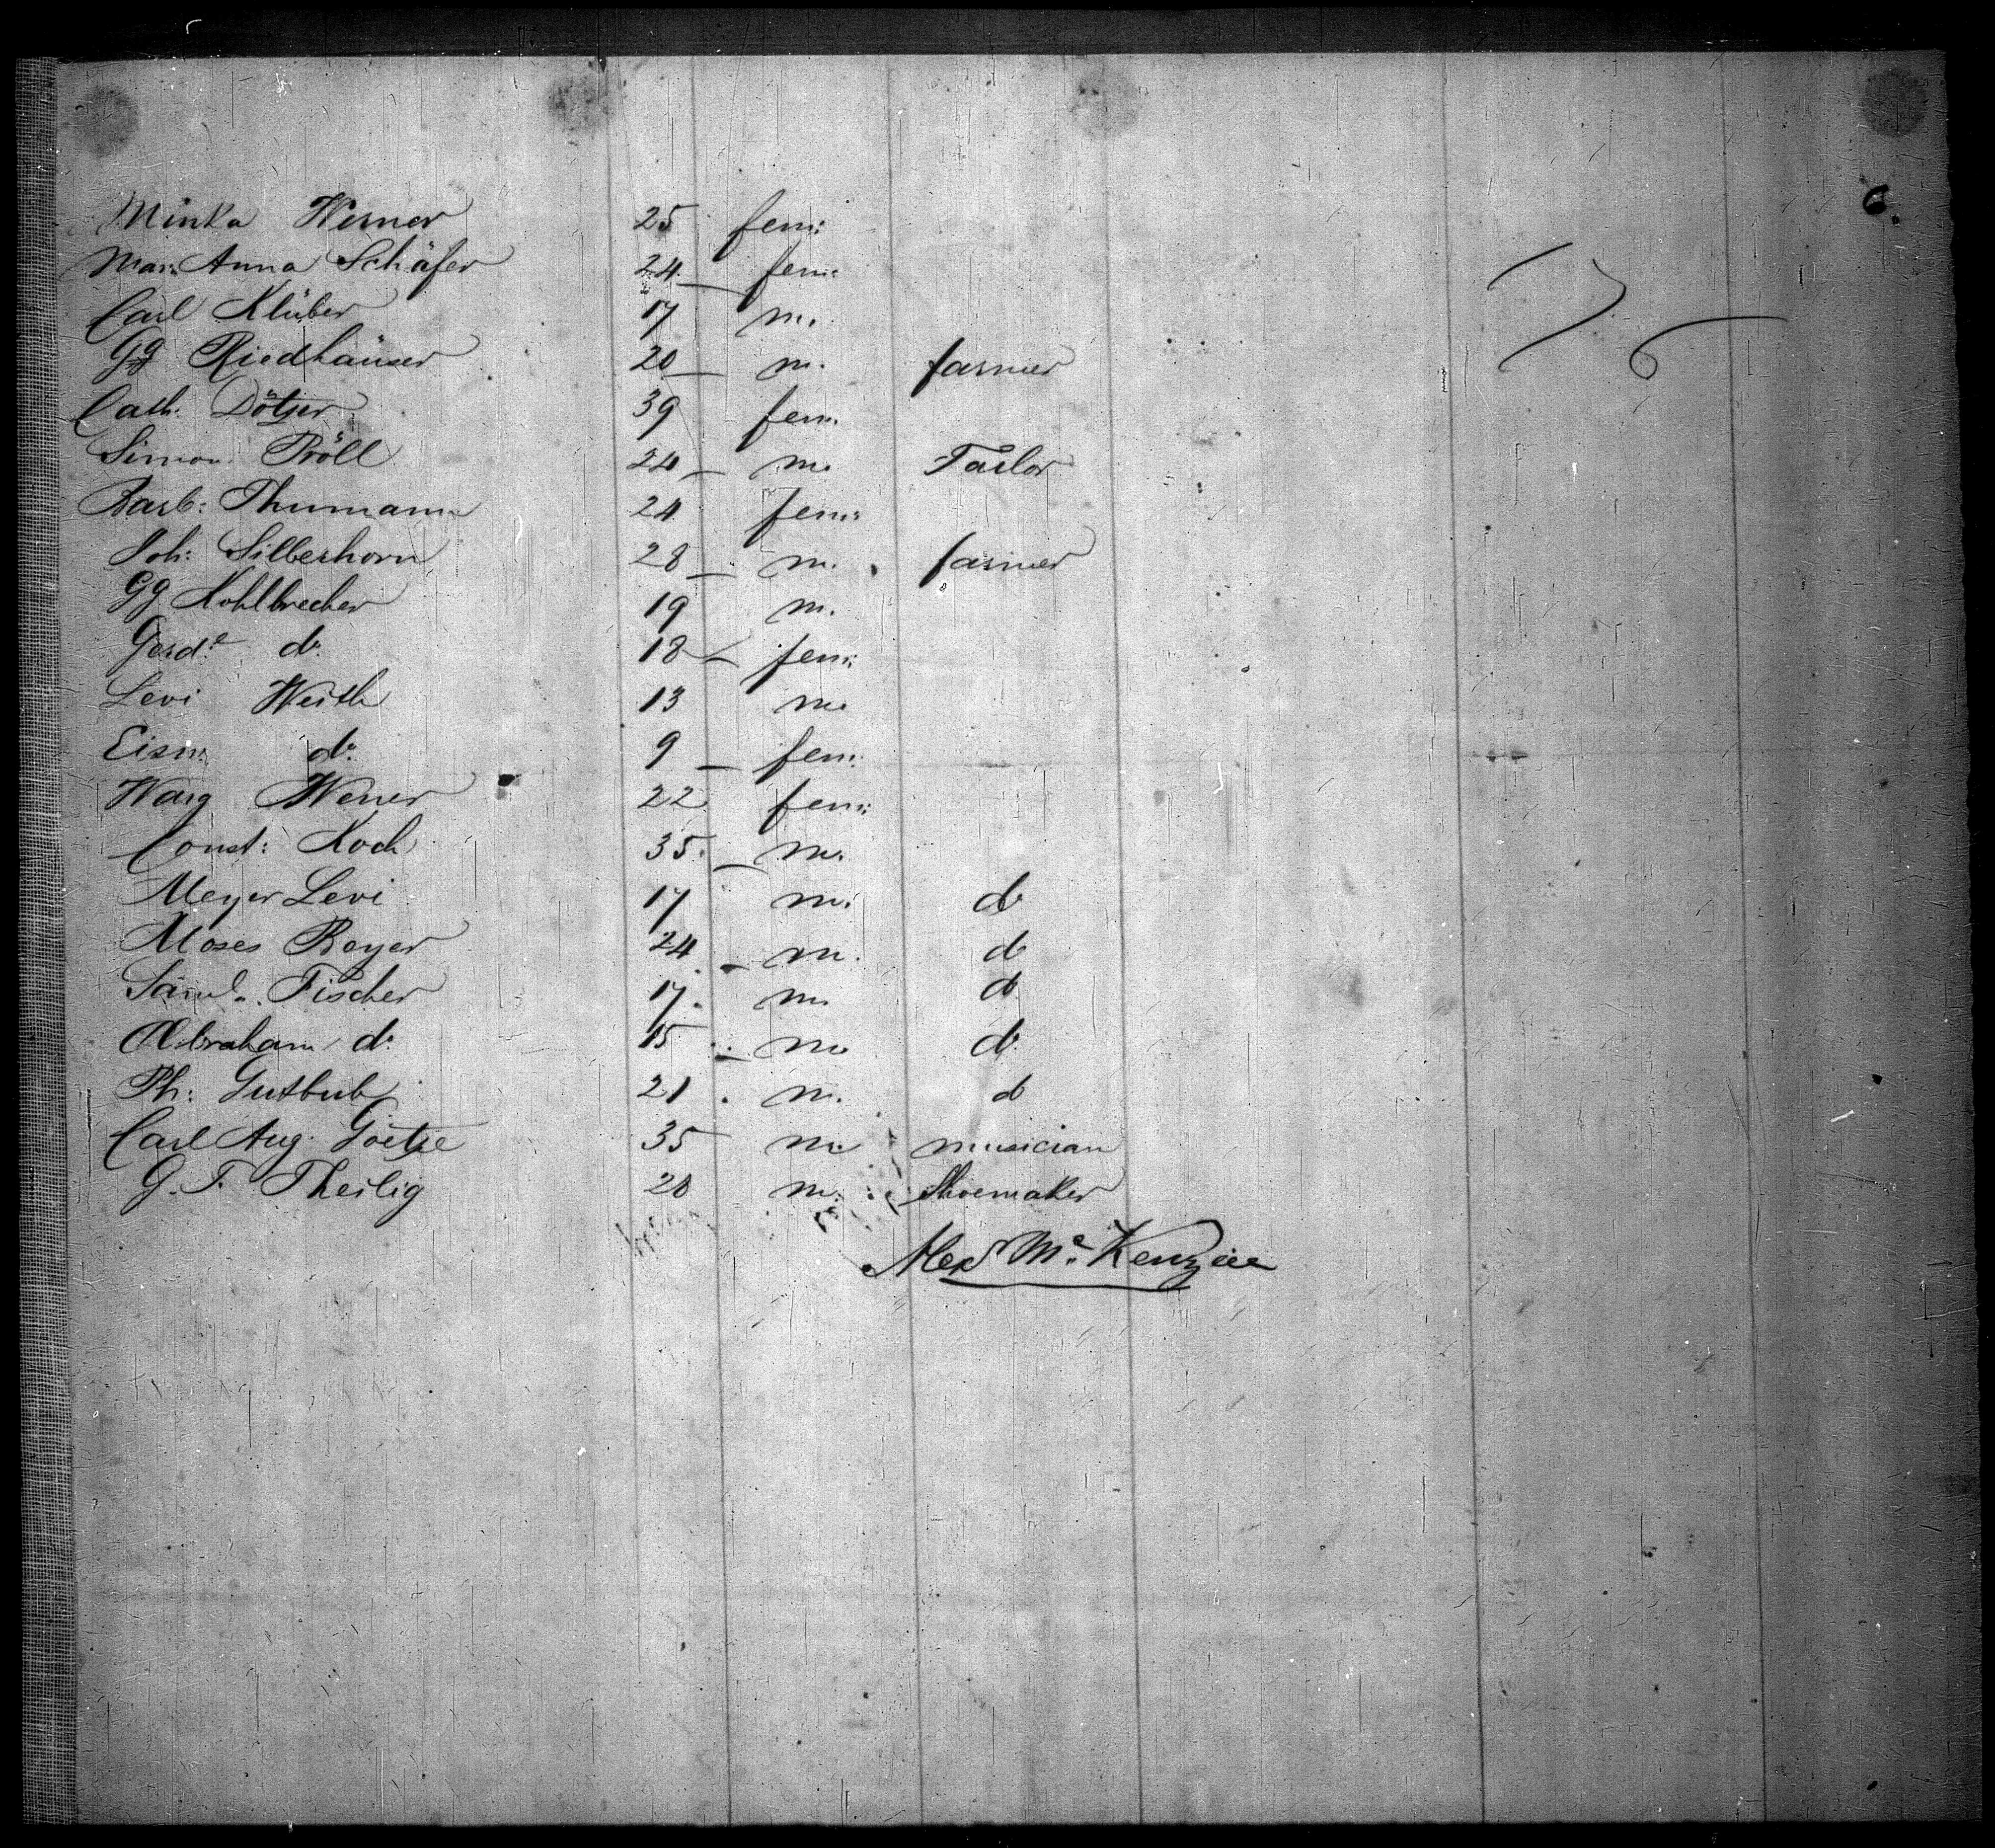 6.
Minka Werner 25 fem:
Mar: Anna Schäfer 24 fem:
Carl Klüber 17 m.
Gg Riedhäuser 20 m. farmer
Cath: Dötzer 39 fem.
Simon Pröll 24 m. Tailor
Barb: Thumann 24 fem:
Joh: Silberhorn 28 m. farmer
Gg Kohlbrecher 19 m.
Gerde do. 18 fem:
Levi Weith 13 m.
Eism: do. 9 fem:
Warg Werner 22 fem:
Const: Koch 35. m.
Meyer Levi 17 m. do
Moses Beyer 24 m. do
Saml. Fischer 17. m. do
Abraham do. 15 m. do.
Ph: Gutbub 21 m. do
Carl Aug. Goetze 35 m. musician
G. F. Theilig 28 m: Shoemaker
Alex Mc. Kenzie